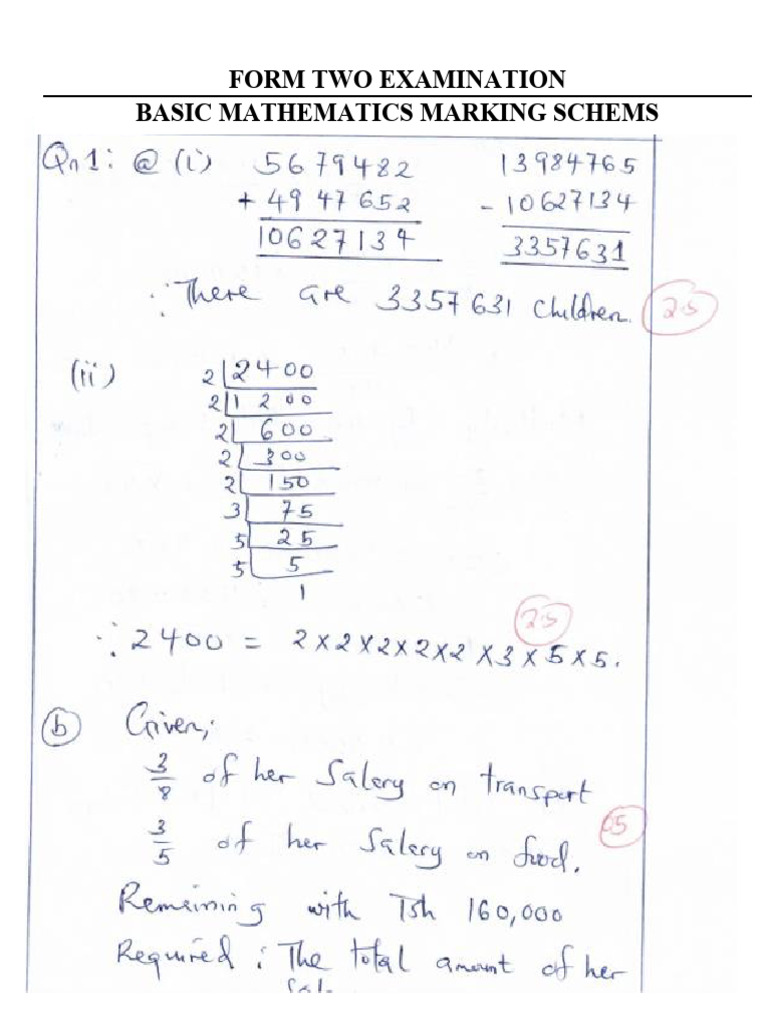 FORM TWO EXAMINATION
BASIC MATHEMATICS MARKING SCHEMS
Qn1: @ (i) 5679482 13984765
+ 4947652 - 10627134
10627134 3357631
∴ There are 3357631 children. 2.5
(ii) 2 2400
2 1200
2 600
2 300
2 150
3 75
5 25
5 5
1
2.5
∴ 2400 = 2×2×2×2×2×3×5×5.
(b) Given;
3/8 of her Salary on transport
3/5 of her Salary on food. 05
Remaining with Tsh 160,000
Required: The total amount of her